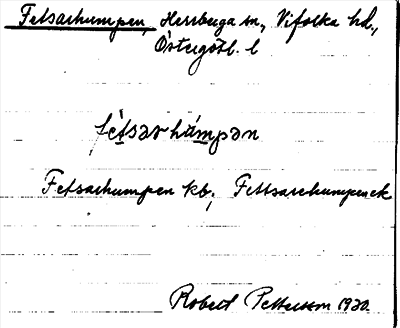 Fetsarhumpen Herrberga sn, Vifolka hd.,
Östergötl. l
fétsarhúmpən
Fetsarhumpen kb, Fettsarehumpen ek
Robert Pettersson 1920.